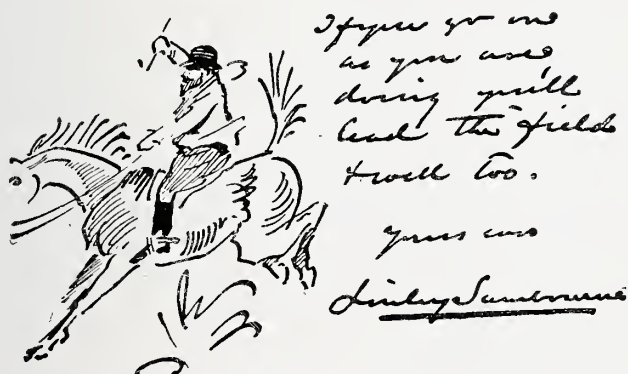 If you go on
as you are
doing you'll
lead the field
& well too.
yours ever
Linley Sambourne